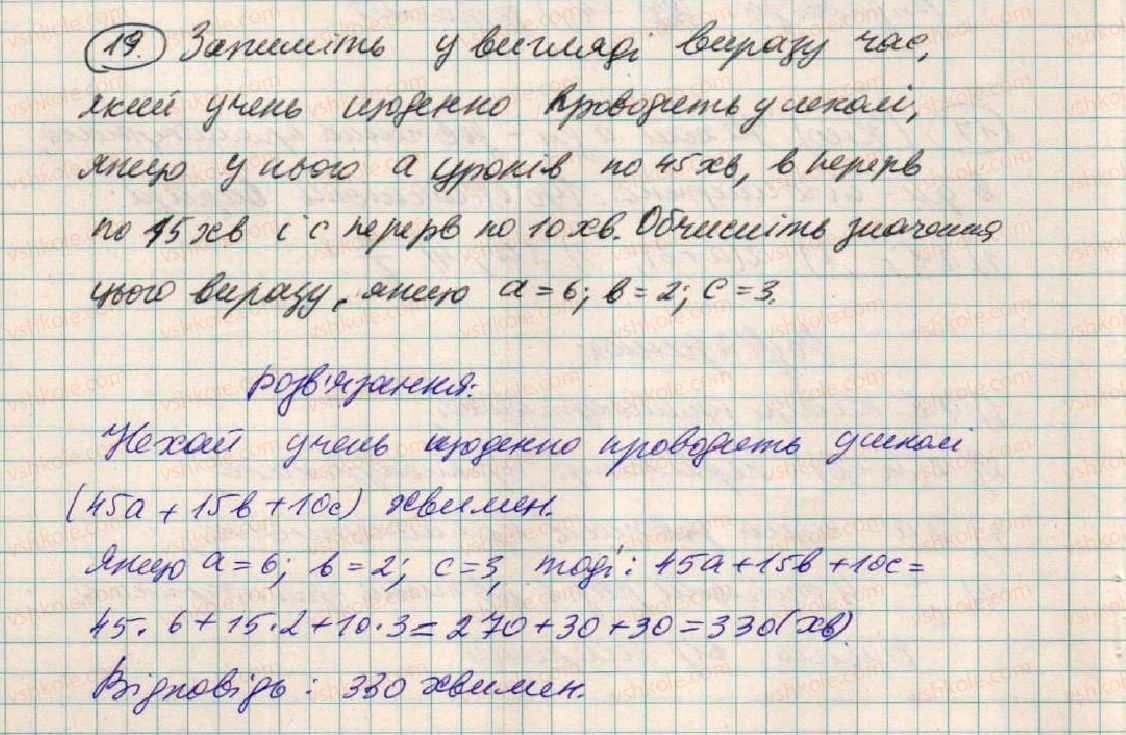 19. Запишіть у вигляді виразу час,
який учень щоденно проводить у школі,
якщо у нього a уроків по 45 хв, в перерв
по 15 хв і с перерв по 10 хв. Обчисліть значення
цього виразу, якщо a = 6; в = 2; с = 3.
Розв'язання:
Нехай учень щоденно проводить у школі
(45a + 15в + 10с) хвилин.
Якщо a = 6; в = 2; с = 3, тоді: 45a + 15в + 10с =
45 · 6 + 15 · 2 + 10 · 3 = 270 + 30 + 30 = 330 (хв)
Відповідь: 330 хвилин.